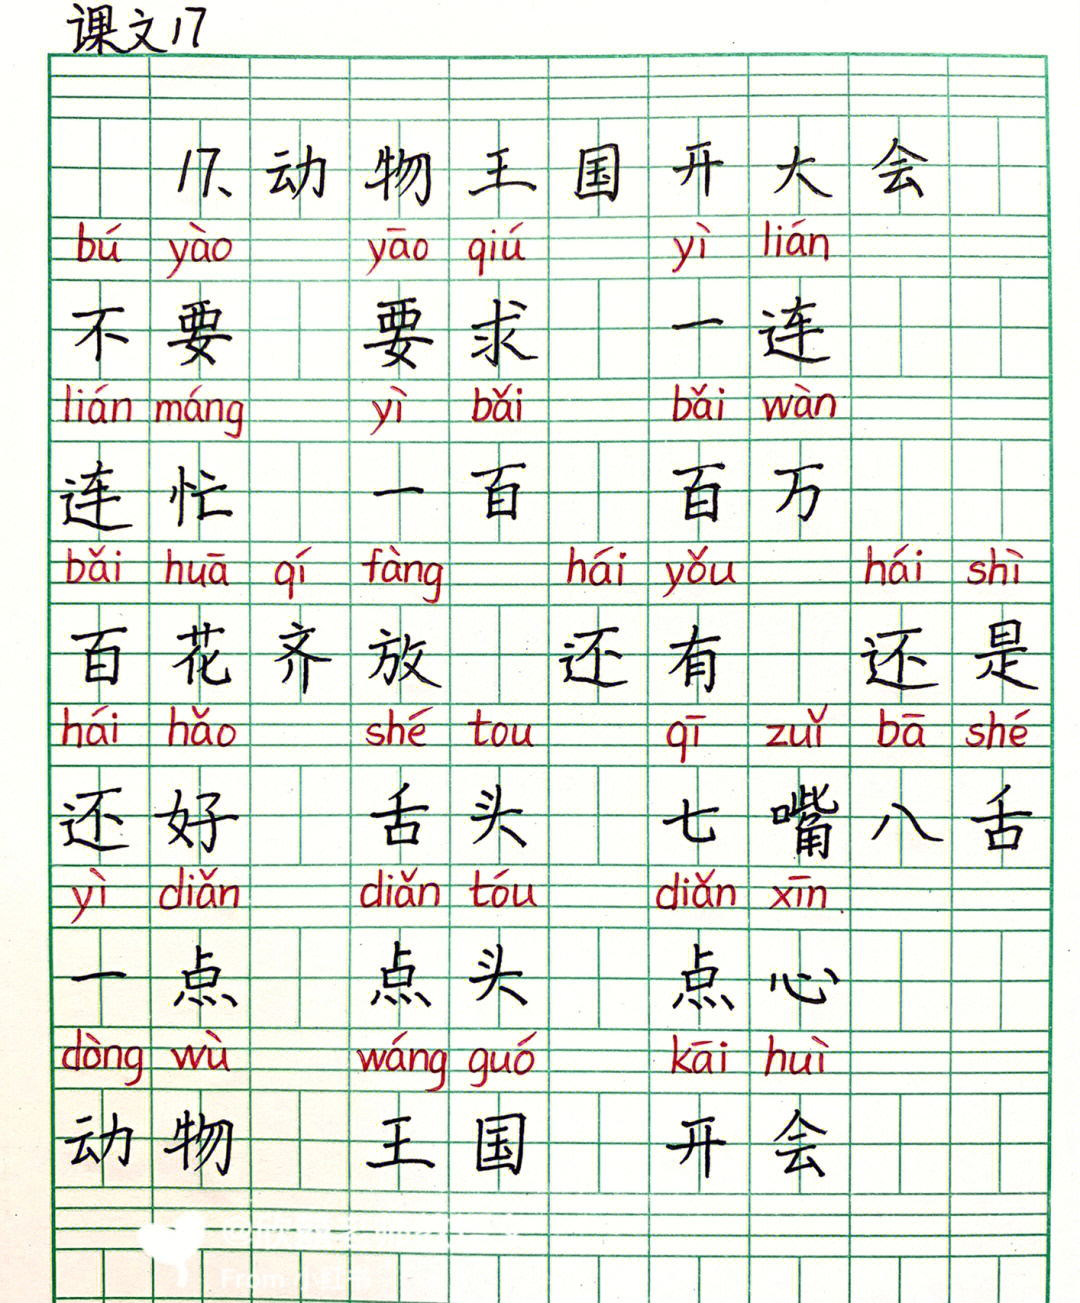 课文17
17、动物王国开大会
bú yào yāo qiú yì lián
不要 要求 一连
lián máng yì bǎi bǎi wàn
连忙 一百 百万
bǎi huā qí fàng hái yǒu hái shì
百花齐放 还有 还是
hái hǎo shé tou qī zuǐ bā shé
还好 舌头 七嘴八舌
yì diǎn diǎn tóu diǎn xīn
一点 点头 点心
dòng wù wáng guó kāi huì
动物 王国 开会
From 小红书